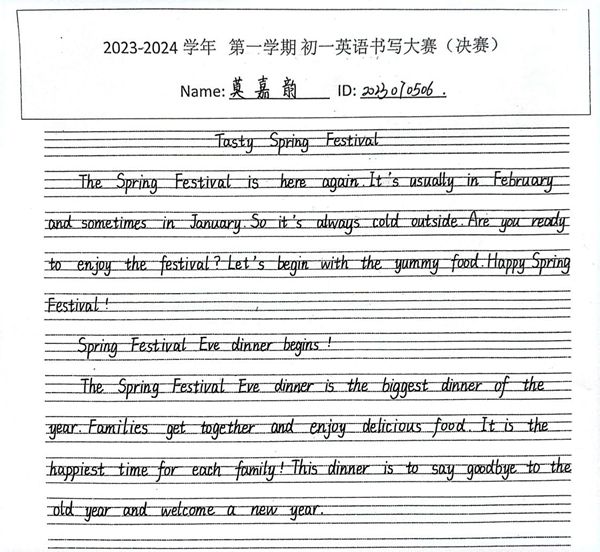 2023-2024 学年 第一学期 初一英语书写大赛（决赛）
Name: 莫嘉韵 ID: 2023070506.
Tasty Spring Festival
The Spring Festival is here again. It's usually in February
and sometimes in January. So it's always cold outside. Are you ready
to enjoy the festival? Let's begin with the yummy food. Happy Spring
Festival!
Spring Festival Eve dinner begins!
The Spring Festival Eve dinner is the biggest dinner of the
year. Families get together and enjoy delicious food. It is the
happiest time for each family! This dinner is to say goodbye to the
old year and welcome a new year.